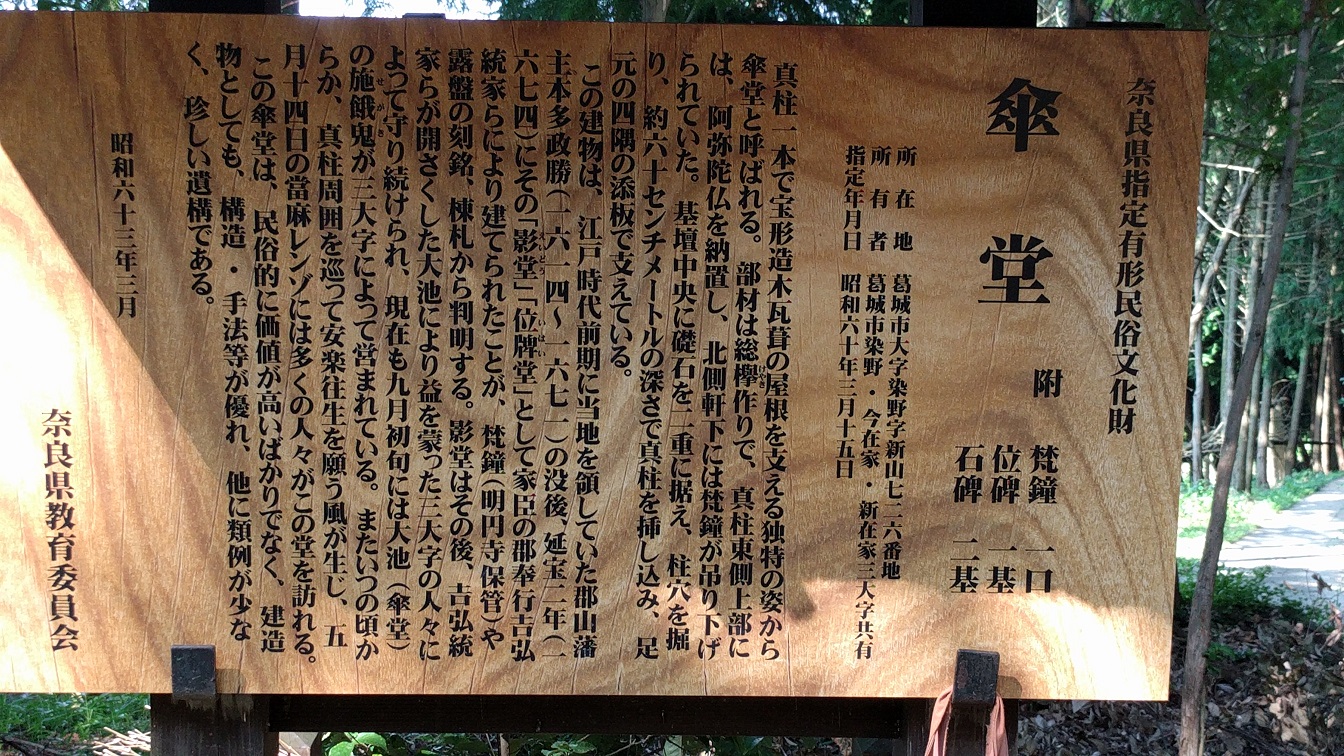 奈良県指定有形民俗文化財
傘堂 附 梵鐘 一口
位碑 一基
石碑 二基
所在地 葛城市大字染野字新山七二六番地
所有者 葛城市染野・今在家・新在家三大字共有
指定年月日 昭和六十年三月十五日
真柱一本で宝形造木瓦葺の屋根を支える独特の姿から
傘堂と呼ばれる。部材は総欅作りで、真柱東側上部に
けやき
は、阿弥陀仏を納置し、北側軒下には梵鐘が吊り下げ
られていた。基壇中央に礎石を二重に据え、柱穴を掘
り、約六十センチメートルの深さで真柱を挿し込み、足
元の四隅の添板で支えている。
この建物は、江戸時代前期に当地を領していた郡山藩
主本多政勝(一六一四〜一六七一)の没後、延宝二年(一
六七四)にその「影堂」「位牌堂」として家臣の郡奉行吉弘
えいどう いはい
統家らにより建てられたことが、梵鐘(明円寺保管)や
露盤の刻銘、棟札から判明する。影堂はその後、吉弘統
家らが開さくした大池により益を蒙った三大字の人々に
よって守り続けられ、現在も九月初旬には大池(傘堂)
の施餓鬼が三大字によって営まれている。またいつの頃か
せがき
らか、真柱周囲を巡って安楽往生を願う風が生じ、五
月十四日の當麻レンゾには多くの人々がこの堂を訪れる。
この傘堂は、民俗的に価値が高いばかりでなく、建造
物としても、構造・手法等が優れ、他に類例が少な
く、珍しい遺構である。
昭和六十三年三月
奈良県教育委員会